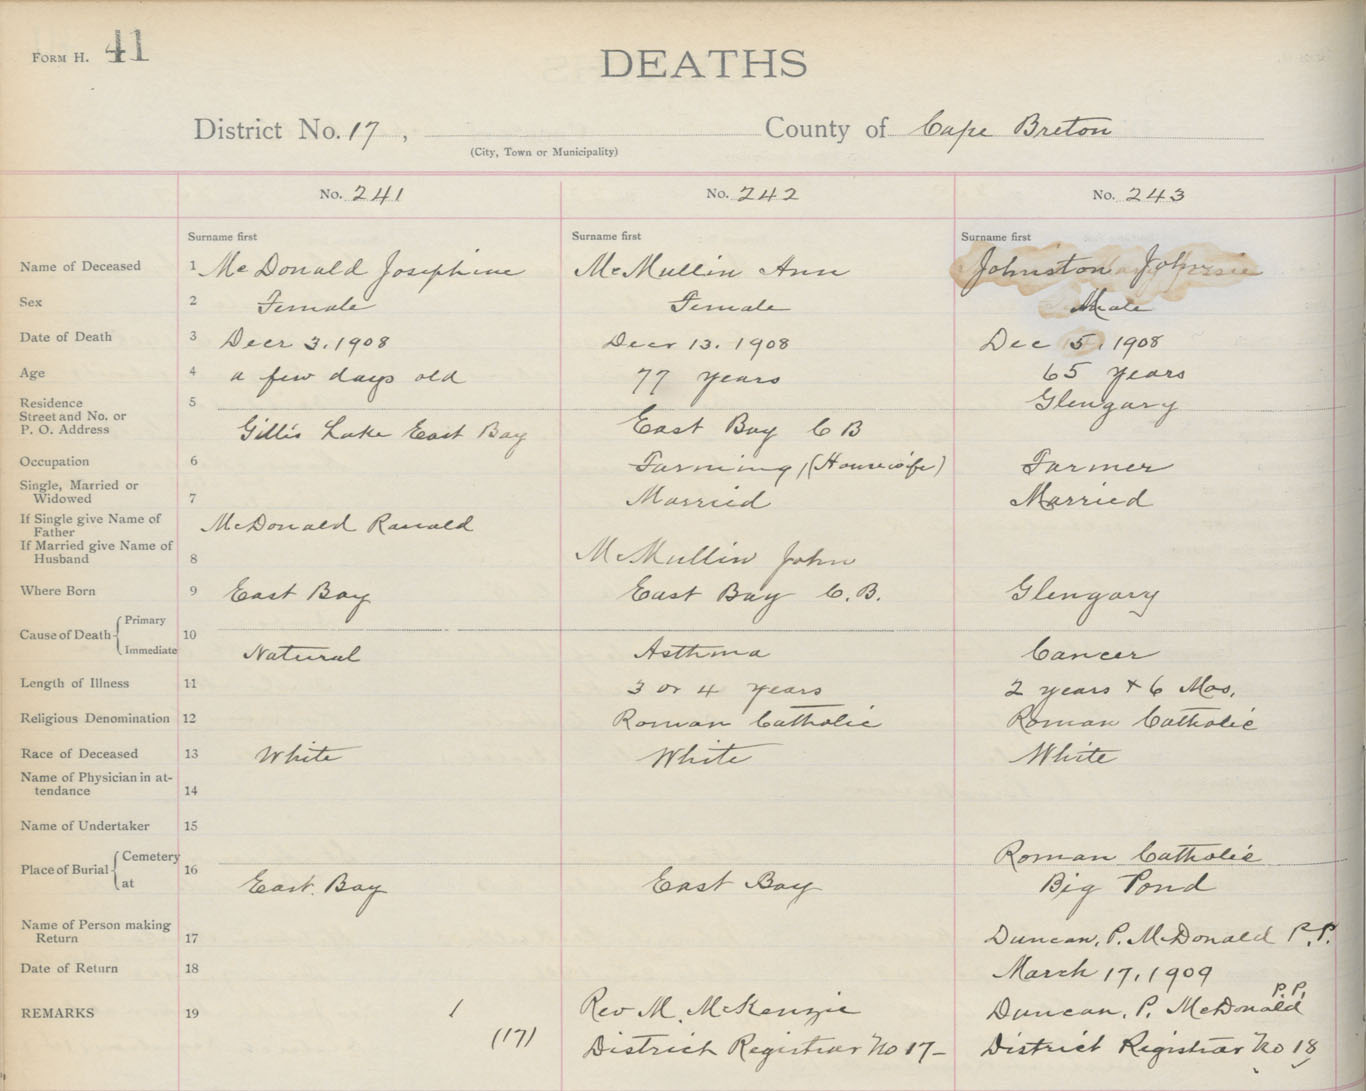 FORM H. 41
DEATHS
District No. 17, County of Cape Breton
(City, Town or Municipality)
No. 241 No. 242 No. 243
Surname first Surname first Surname first
Name of Deceased 1 McDonald Josephine McMullin Ann Johnston John
Sex 2 Female Female Male
Date of Death 3 Decr 3, 1908 Decr 13, 1908 Dec 5, 1908
Age 4 a few days old 77 years 65 years
Residence 5 Glengary
Street and No. or
P. O. Address Gillis Lake East Bay East Bay C B
Occupation 6 Farming, (Housewife) Farmer
Single, Married or
Widowed 7 Married Married
If Single give Name of
Father McDonald Ranald
If Married give Name of
Husband 8 McMullin John
Where Born 9 East Bay East Bay C.B. Glengary
Cause of Death Primary 10
Immediate Natural Asthma Cancer
Length of Illness 11 3 or 4 years 2 years + 6 Mos.
Religious Denomination 12 Roman Catholic Roman Catholic
Race of Deceased 13 White White White
Name of Physician in at-
tendance 14
Name of Undertaker 15
Place of Burial Cemetery 16 Roman Catholic
at East Bay East Bay Big Pond
Name of Person making
Return 17 Duncan, P. McDonald P.P.
Date of Return 18 March 17, 1909
REMARKS 19 1 Rev M. McKenzie Duncan, P. McDonald P.P.
(17) District Registrar No 17- District Registrar No 18